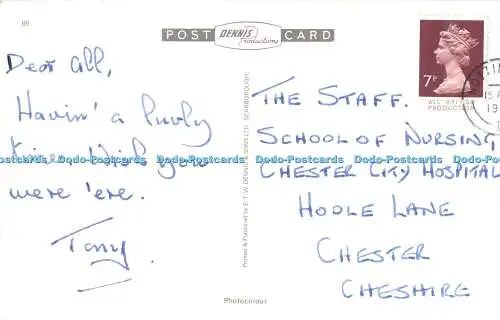 89
POST DENNIS Productions CARD
Dear all,
Havin' a luvly
time. Wish you
were 'ere.
Tony
Printed & Published by E.T.W. DENNIS & SONS LTD. SCARBOROUGH
Photocolour
7P
ALL BRITISH
PRODUCTION
15 A
19
THE STAFF.
SCHOOL OF NURSING
CHESTER CITY HOSPITAL
HOOLE LANE
CHESTER
CHESHIRE
Dodo-Postcards Dodo-Postcards Dodo-Postcards Dodo-Postcards Dodo-Postcards Dodo-Postcards